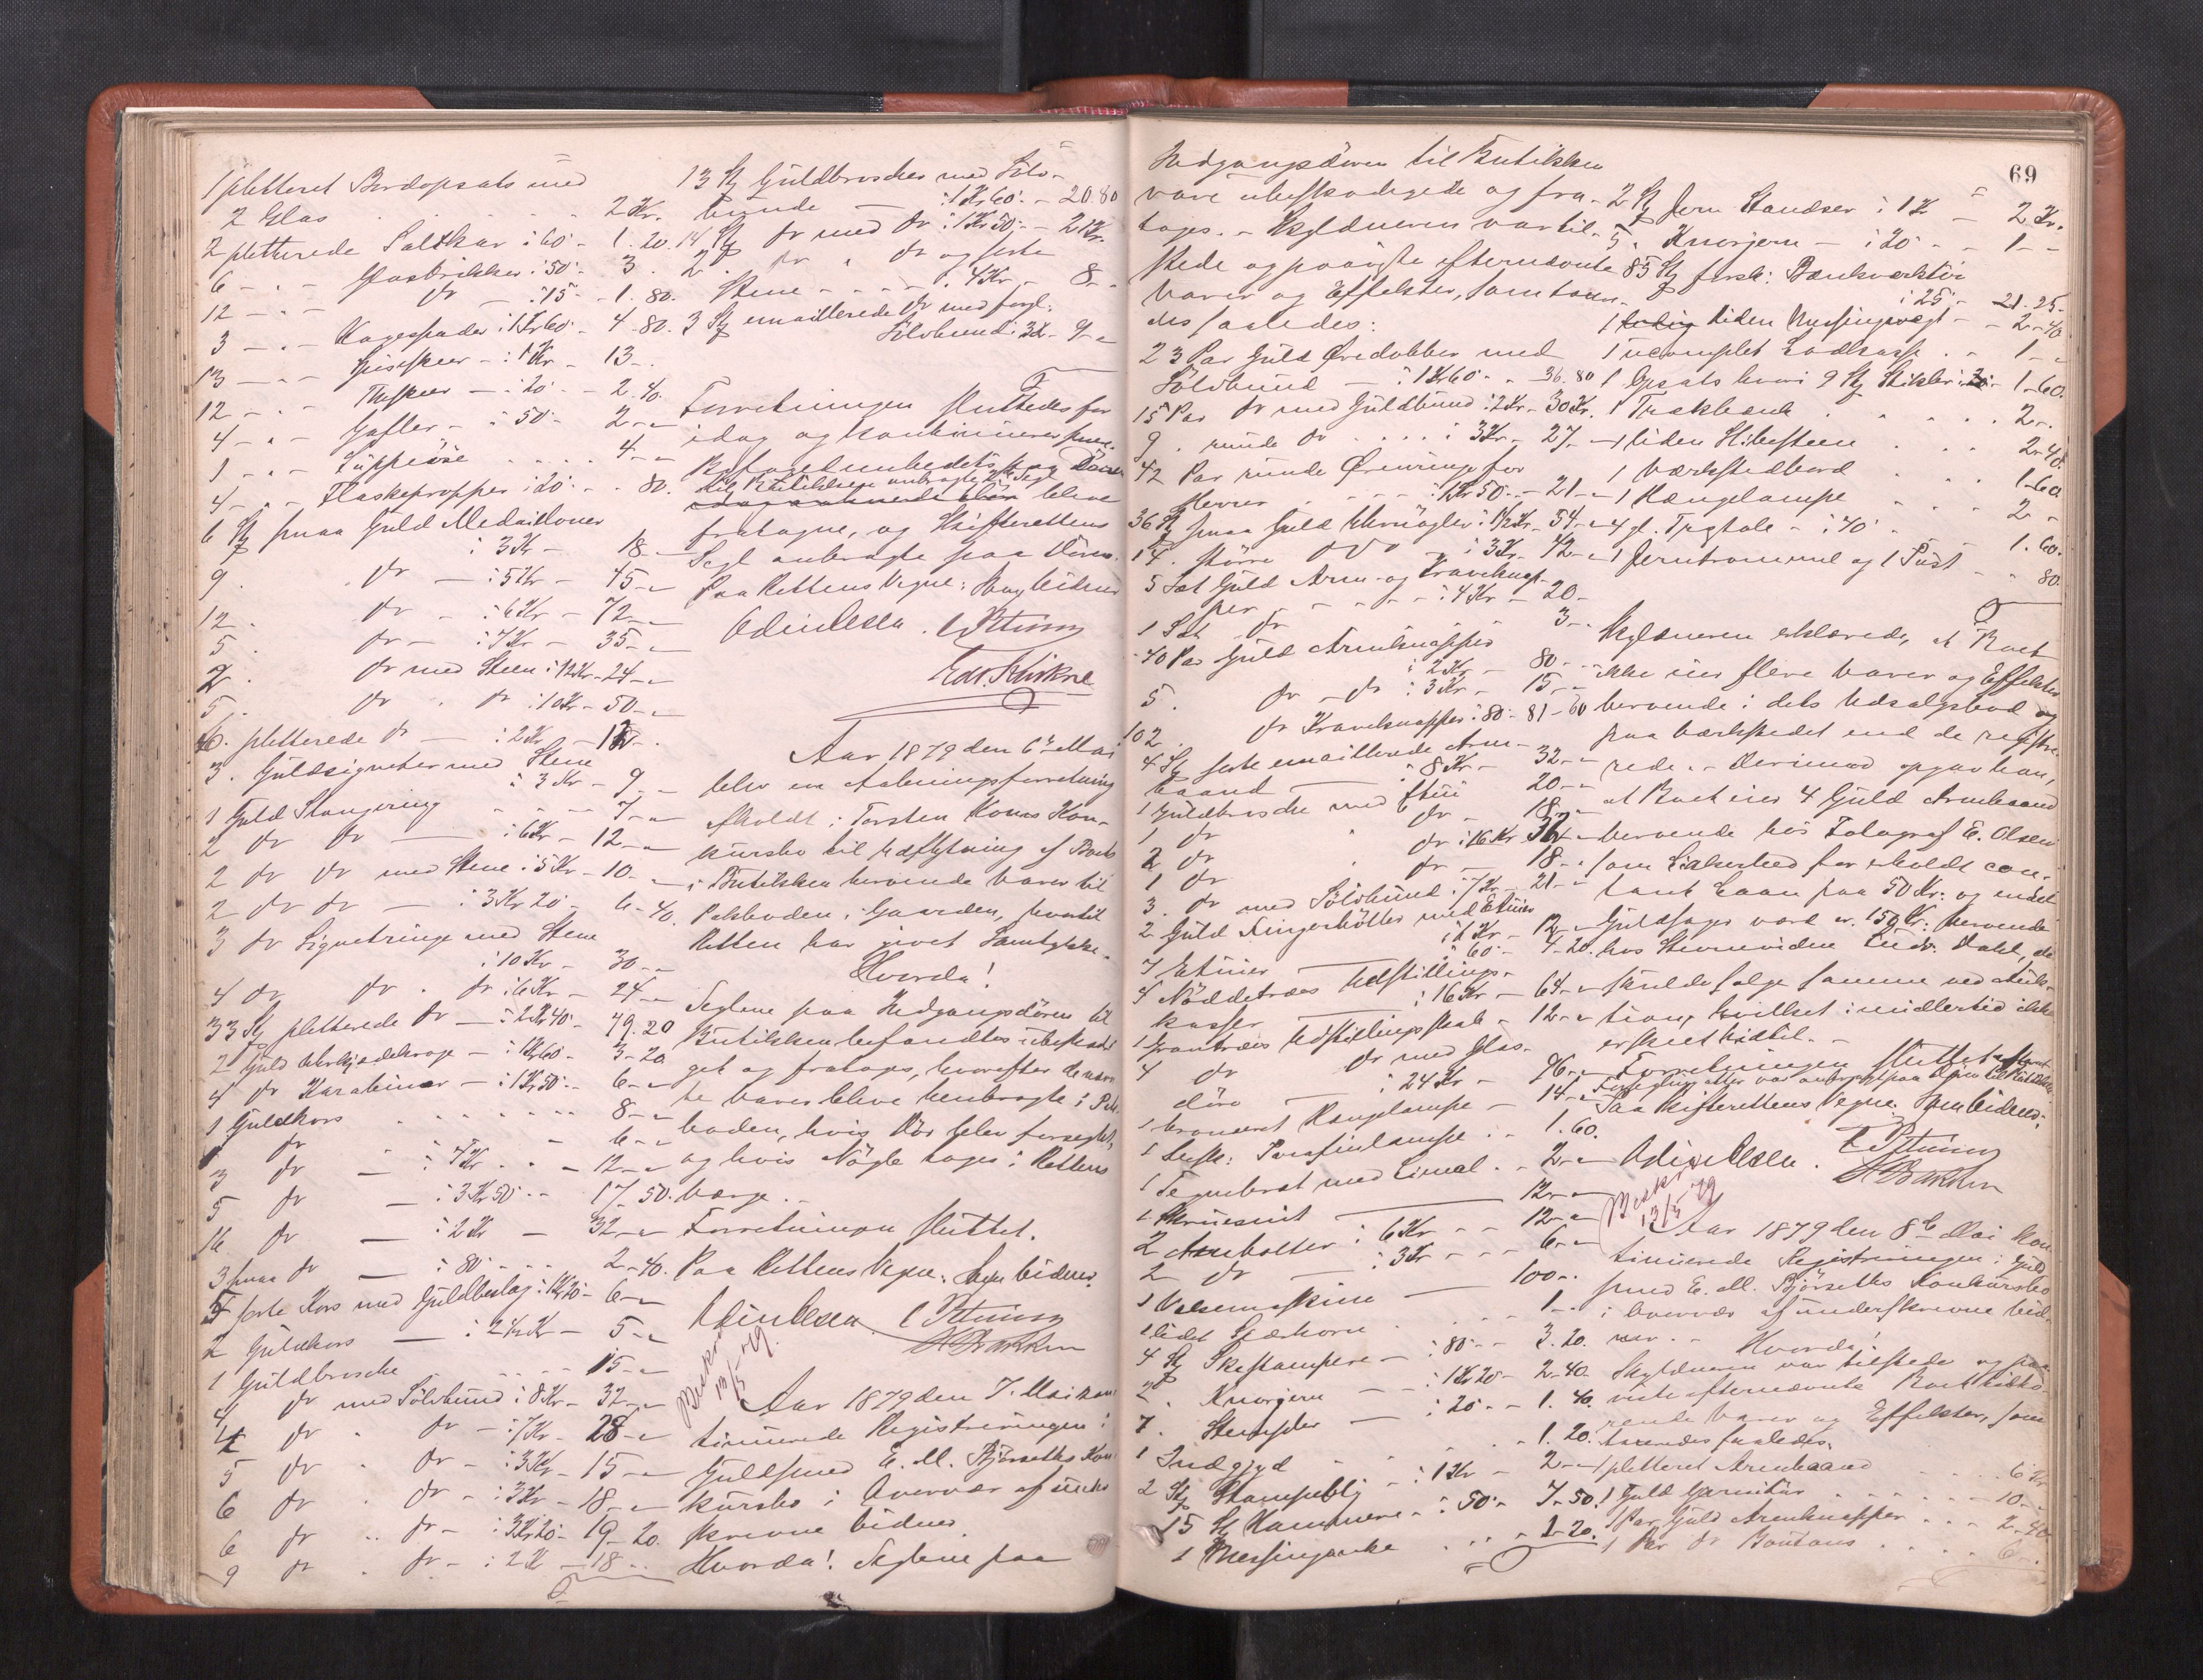 1 pletteret Bordopsats med
2 Glas . . . . 2 Kr.
2 pletterede Saltkar i 60 - 1.20.
6 - " - Glasbrikker i 50 - 3.
12 - " - do - i 15 - 1.80.
3 - " - Kagespader i 1 Kr 60 - 4.80.
13 - " - Spiseskeer - i 1 Kr - 13 -
12 - " - Theskeer - i 20 - 2.40.
4 - " - Gafler - i 50 - 2 - "
1 - " - Suppeøse . . . . 4 - "
4 - " - Flaskepropper i 20 - . 80.
6 St smaa Guld Medailloner
i 3 Kr - 18 -
9 . do - i 5 Kr - 45 - "
12 . do - i 6 Kr - 72 - "
5 . do - i 7 Kr - 35 - "
2 . do med Steen i 12 Kr - 24 - "
5 . do . do i 10 Kr - 50 - "
6 . pletterede do - i 2 Kr - 12 - .
3 . Guldsigneter med Stene
i 3 Kr - 9 -
1 Guld Slangering . . . . 7 - "
2 do do - i 6 Kr - 12 - "
2 do do med Stene i 5 Kr - 10 - "
2 do do - i 3 Kr 20 - 6 - 40.
3 do Signetringe med Stene
i 10 Kr - 30 - "
4 do do . do i 6 Kr - 24 - "
33 St pletterede do - i 2 Kr 40 - 79.20
2 Guld Uhrkjædekroge - i 1 Kr 60 - 3 - 20.
4 do Karabiner - i 1 Kr 50 - 6 - "
1 Guldkors . . . . 8 - "
1 do - 6 - "
3 do - i 4 Kr . . - 12 - "
5 do - i 3 Kr 50 - 17.50.
16 do - i 2 Kr - 32 - "
3 smaa do - i 80 - 2 - 40.
5 sorte Kors med Guldbeslag i 1 Kr 20 - 6 - "
2 Guldkors - i 2½ Kr - 5 - "
1 Guldbrosche . . . 15 - "
4 do med Sölvbund i 8 Kr - 32 - "
4 do . do - i 7 Kr - 28 - "
5 do . do - i 3 Kr - 15 - "
6 do . do - i 3 Kr - 18 - "
6 do . do - i 3 Kr 20 - 19 - 20.
9 do . do - i 2 Kr - 18 - .
13 St Guldbrosches med Sölv-
bunde - i 1 Kr 60 - 20.80
14 St do med do i 1 Kr 50 - 21 Kr.
2 . do . do og sorte
Stene - - - i 4 Kr - 8 -
3 St emaillerede do med forgl.
Sölvbund i 3 Kr - 9 - "
Forretningen sluttedes for
idag og kontinueres senere.
til Butikken anbragte Segl
bleve
fratagne, og Skifterettens
Segl anbragte paa Dören.
Paa Rettens Vegne: Som Vidner
Odin Olsen .
Edv. Ruskne
Aar 1879 den 6te Mai
blev en Aabningsforretning
afholdt i Torsten Kones Kon-
kursbo til Udflytning af Boets
i Butikken beroende Varer til
Pakboden i Gaarden, hvortil
Retten har givet Samtykke.
Hvorda!
Seglene paa Nedgangsdören til
Butikken befandtes ubeskadi-
get og fratages, hvorefter de nævn-
te Varer bleve henbragte i Pak-
boden, hvis Dör blev forseglet,
og hvis Nögle tages i Rettens
Værge. -
Forretningen sluttet.
Paa Rettens Vegne. Som Vidner.
Odin Olsen
Beskr 13/5 79.
Aar 1879 den 7. Mai kon-
tinuerede Registreringen i
Guldsmed E. M. Björseths Kon-
kursbo i Overvær af under-
skrevne Vidner.
Hvorda! Seglene paa
69
Nedgangsdören til Butikken
vare ubeskadigede og fra-
tages. - Skyldneren var til-
stede og paaviste efternævnte
Varer og Effekter, som taxer-
des saaledes:
23 Par Guld Øredobber med
Sölvbund - i 1 Kr 60 - 36.80
15 Par do med Guldbund i 2 Kr - 30 Kr.
9 . runde do . . . . i 3 Kr - 27 - "
42 Par runde Øreringe for
Herrer . . . i 1 Kr 50 - 21 - "
36 St smaa Guld Uhrnögler i 1½ Kr - 54 - "
14 . större do - i 3 Kr - 42 - "
5 Sæt Guld Arm- og Kraveknap-
per - - - - i 4 Kr - 20 -
1 Sæt do 3 - .
40 Par Guld Armknapper
i 2 Kr - 80 -
5 . do - do i 3 Kr - 15 - "
102 . do Kraveknapper i 80 - 81 - 60
4 St sorte emaillerede Arm-
baand i 8 Kr - 32 - "
1 Guldbrosche med Etui 20 - "
1 do . do - 18 - "
2 do . do i 16 Kr 32 - "
1 do do - 18 - "
3 . do med Sölvbund i 7 Kr - 21 - "
2 Guld Fingerbötter med Etuier
- 12 - "
7 Etuier - i 60 - 4 - 20.
4 Nöddetræes Udstillings-
kasser - i 16 Kr - 64 - "
1 Grantræes Udstillingsskab - 12 - "
4 do do med Glas-
döre - i 24 Kr - 96 - "
1 bronceret Hangelampe - 14 - "
1 Parafinlampe . . 1.60.
1 Tegnebræt med Lineal . . 2 - "
1 Skruestik 12 - "
2 Ambolter i 6 Kr - - 12 - "
2 do - i 3 Kr - - - 6 - "
1 Valsemaskine - 100 - .
1 lidet Spærhorn . . . . 1 - .
4 St Skestampere - i 80 - 3.20.
2 . Knorjern - - i 1 Kr 20 - 2 - 40.
7 . Stempler - i 20 - - 1.40.
1 . . . 1.20.
2 St i 1 Kr - 2 - "
15 St Hammere - i 50 - 7 - 50.
1 Messinganke . . . 1 - 20.
2 St Jern Standser i 1 Kr - 2 Kr.
5 . Knorjern - i 20 - - 1 - -
85 St forsk: Bænkverktöi
i 25 - 21.25
1 liden Messingvægt - - 2 - 40.
1 ucomplet Lodkasse . . 1 - "
1 Opsats hvori 9 St Stikler i 20 - 1 - 60.
1 Trækbænk . . . . 2 - .
1 liden Slibesteen . . . 2 - 40.
1 Værkstedbord . . 1 - 60
1 Hængelampe . . 2 - -
4 gl. Træstole - i 40 - 1.60.
1 Jerntrommel og 1 Pust - - 80.
Skyldneren erklærede, at Boet
ikke eier flere Varer og Effekter
beroende i dets Udsalgsbod og
paa Værkstedet end de registre-
rede. - Derimod opgav han,
at Boet eier 4 Guld Armbaand
beroende hos Fotograf E. Olsen
som Sikkerhed for erholdt con-
tant Laan paa 50 Kr: og endel
Guldsager værd ca. 150 Kr: beroende
hos Stevnevidne Dahl, der
skulde sælge samme ved Auk-
tion, hvilket imidlertid ikke
er skeet hidtil. -
Forretningen sluttet
Paa Skifterettens Vegne. Som Vidner:
Odin Olsen .
Beskr 13/5 79
Aar 1879 den 8de Mai kon-
tinuerede Registreringen i Guld-
smed E. M. Björseths Konkursbo
i Overvær af underskrevne Vid-
ner. - Hvorda!
Skyldneren var tilstede og paa-
viste efternævnte Boet tilhö-
rende Varer og Effekter, som
taxeredes saaledes:
1 pletteret Armbaand . . . . 6 Kr
1 Guld Garnitur . . . . . 10 - .
1 Par Guld Armknapper . . . 2 - 40
1 Par do Boutons . . . . 6 - .